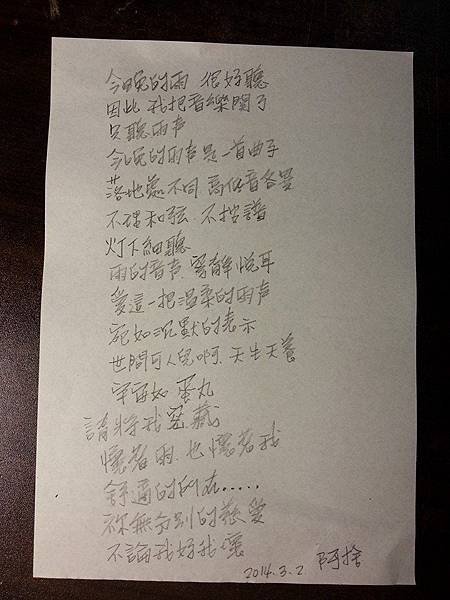 今晚的雨 很好聽
因此 我把音樂関了
只聽雨声
今晚的雨声是一首曲子
落地處不同 高低音各異
不理和弦 不按譜
灯下細聽
雨的音声 寛解悅耳
愛這一把溫柔的雨声
宛如沉默的表示
世間可人兒啊 天生天養
宇宙如 蛋丸
請將我 窖藏
懷著雨 也懷著我
舒適的所在.....
祢無分別的慈愛
不論我好我壞
2014.3.2 阿捨